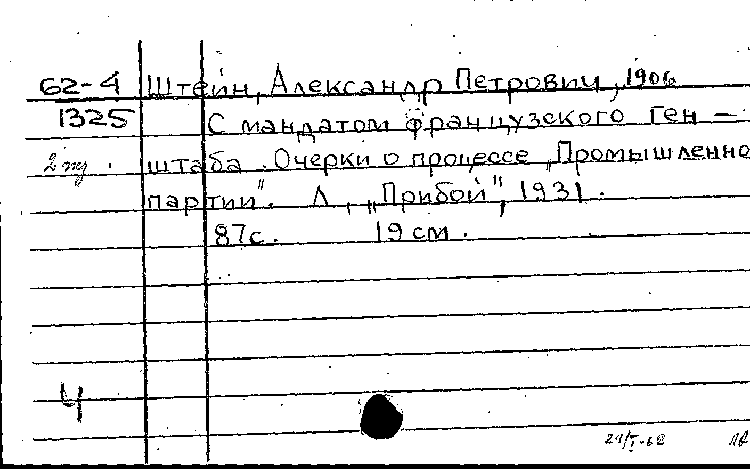 62-4 Штейн, Александр Петрович, 1906
1325 С мандатом французского ген-
штаба. Очерки о процессе „Промышленно
партии". Л., „Прибой", 1931.
87с. 19 см.
4